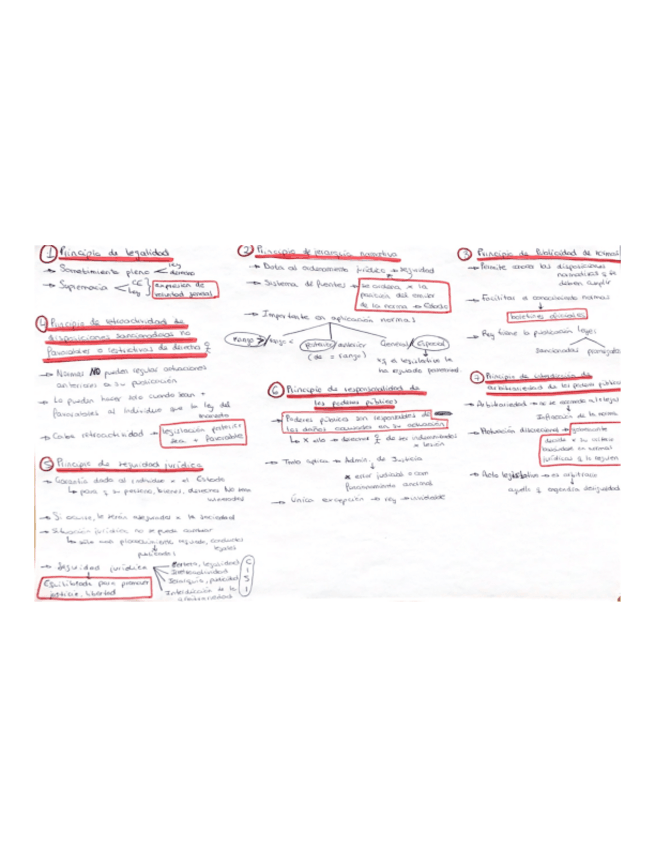 ① Principio de legalidad
→ Sometimiento pleno < ley
derecho
→ Supremacía < CE
Ley } expresión de
voluntad general
④ Principio de retroactividad de
disposiciones sancionadoras no
favorables o restrictivas de derecho
→ Normas NO pueden regular actuaciones
anteriores a su publicación
→ Lo pueden hacer solo cuando sean +
favorables al individuo que la ley del
momento
→ Cabe retroactividad → legislación posterior
sea + favorables
⑤ Principio de seguridad jurídica
→ Garantía dada al individuo x el Estado
↳ para q su persona, bienes, derechos NO sean
vulnerados
→ Si ocurre, le serán asegurados x la sociedad
→ Situación jurídica no se puede cambiar
↳ sólo una procedimiento regulado, conductos
legales
publicadas
→ Seguridad jurídica
Certeza, legalidad
Irretroactividad
Jerarquía, publicidad
Interdicción de la
arbitrariedad
Equilibrada para promover
justicia, libertad
② Principio de jerarquía normativa
→ Dota al ordenamiento jurídico → seguridad
→ Sistema de fuentes → se ordena x la
posición del autor
de la norma → Estado
→ Importante en aplicación normas
rango > / rango <
posterior / anterior
(de = rango)
General / especial
→ si el legislativo le
ha seguido
⑥ Principio de responsabilidad de
los poderes públicos
→ Poderes públicos son responsables de
los daños causados en su actuación
↳ x ello → derecho de ser indemnizados
x lesión
→ Trato aplica → Admin. de Justicia
x error judicial o com
funcionamiento anormal
→ Única excepción → ley
③ Principio de Publicidad de normas
→ Permite
disposiciones
normativas q
deben cumplir
→ Facilitar el conocimiento normas
boletines oficiales
→ Rey tiene la publicación leyes
sancionadas
⑦ Principio de interdicción de
arbitrariedad de los poderes públicos
→ Arbitrariedad →
Infracción de la norma
→ Motivación discrecional →
decide x su criterio
basándose en normas
jurídicas q lo regulen
→ Acto legislativo → es arbitrario
aquello q engendra desigualdad